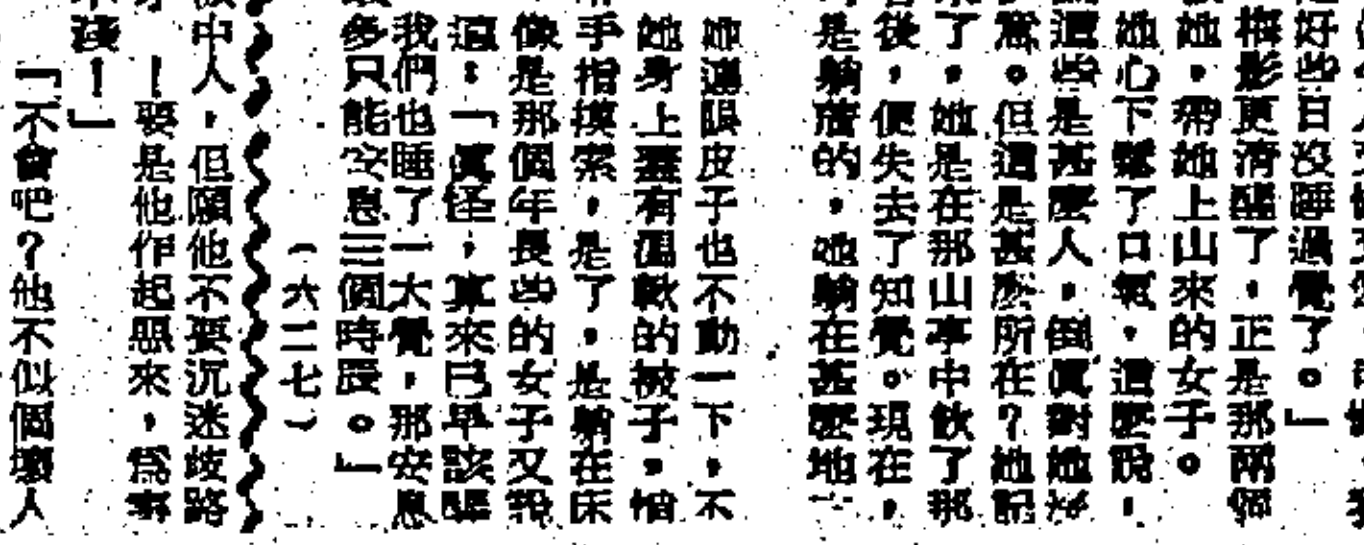 好些日沒睡過覺了。」
梅影更清醒了,正是那兩個
她,帶她上山來的女子。
她心下鬆了口氣,這麼說,
這些是甚麼人,倒真對她好
驚。但這是甚麽所在?她記
了,她是在那山亭中飲了那
後,便失去了知覺。現在,
是躺着的,她躺在甚麼地
她連眼皮子也不動一下,不
她身上蓋有溫軟的被子,悄
手指摸索,是了,是躺在床
像是那個年長些的女子又說
道:「真怪,算來已早該醒
我們也睡了一大覺,那安息
多只能安息三個時辰。」
(六二七)
中人,但願他不要沉迷歧路
—要是他作起惡來,爲害
淺!」
「不會吧?他不似個壞人